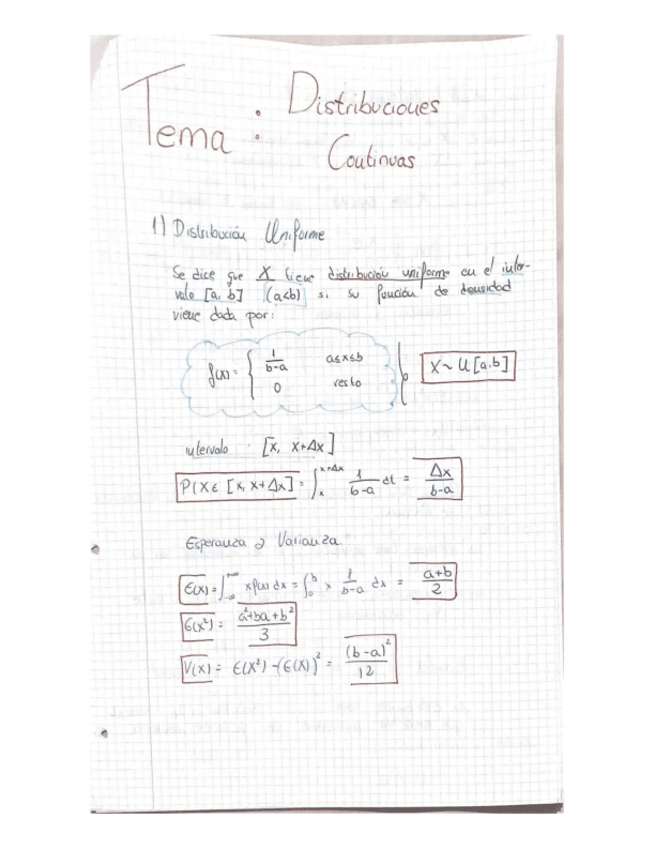 Tema: Distribuciones
Continuas
1) Distribución Uniforme
Se dice que X tiene distribución uniforme en el inter-
valo [a, b] (a<b) si su función de densidad
viene dada por:
f(x) = { 1/(b-a) a≤x≤b
0 resto
X ~ U[a,b]
intervalo [x, x+Δx]
P(X ∈ [x, x+Δx] = ∫_x^{x+Δx} 1/(b-a) dt = Δx/(b-a)
Esperanza y Varianza
E(X) = ∫_{-∞}^{+∞} x f(x) dx = ∫_a^b x 1/(b-a) dx = (a+b)/2
E(X²) = (a²+ba+b²)/3
V(X) = E(X²) - (E(X))² = (b-a)²/12